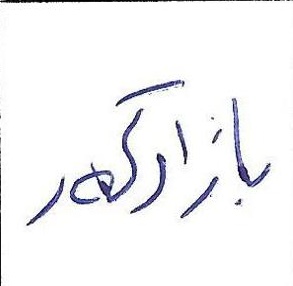 بازارگهر